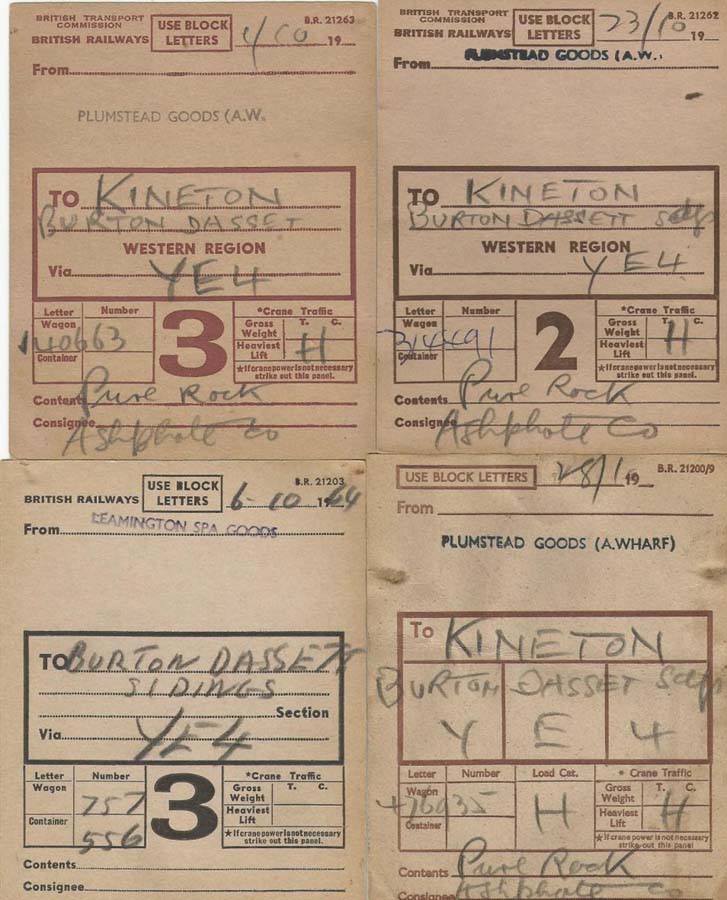 BRITISH TRANSPORT COMMISSION
BRITISH RAILWAYS
USE BLOCK LETTERS
B.R. 21263
4/10 19
From
PLUMSTEAD GOODS (A.W.
TO KINETON
BURTON DASSET
WESTERN REGION
Via YE4
Letter Number
Wagon
140663
Container
3
*Crane Traffic
Gross Weight T. C.
Heaviest Lift H
*If crane power is not necessary strike out this panel.
Contents Pure Rock
Consignee Ashphalte Co
BRITISH TRANSPORT COMMISSION
BRITISH RAILWAYS
USE BLOCK LETTERS
B.R. 21262
23/10 19
From PLUMSTEAD GOODS (A.W.
TO KINETON
BURTON DASSETT Sdgs
WESTERN REGION
Via YE4
Letter Number
Wagon
Container
2
*Crane Traffic
Gross Weight T. C.
Heaviest Lift H
*If crane power is not necessary strike out this panel.
Contents Pure Rock
Consignee Ashphalte Co
BRITISH RAILWAYS
USE BLOCK LETTERS
B.R. 21203
6-10 1964
From LEAMINGTON SPA GOODS
TO BURTON DASSETT
SIDINGS
Section
Via YE4
Letter Number
Wagon 757
Container 556
3
*Crane Traffic
Gross Weight T. C.
Heaviest Lift
*If crane power is not necessary strike out this panel.
Contents
Consignee
USE BLOCK LETTERS
28/1 19
B.R. 21200/9
From
PLUMSTEAD GOODS (A.WHARF)
To KINETON
BURTON DASSET Sdgs
Y E 4
Letter Number Load Cat. * Crane Traffic
Wagon
Container
H
Gross Weight T. C.
Heaviest Lift H
*If crane power is not necessary strike out this panel.
Contents Pure Rock
Consignee Ashphalte Co